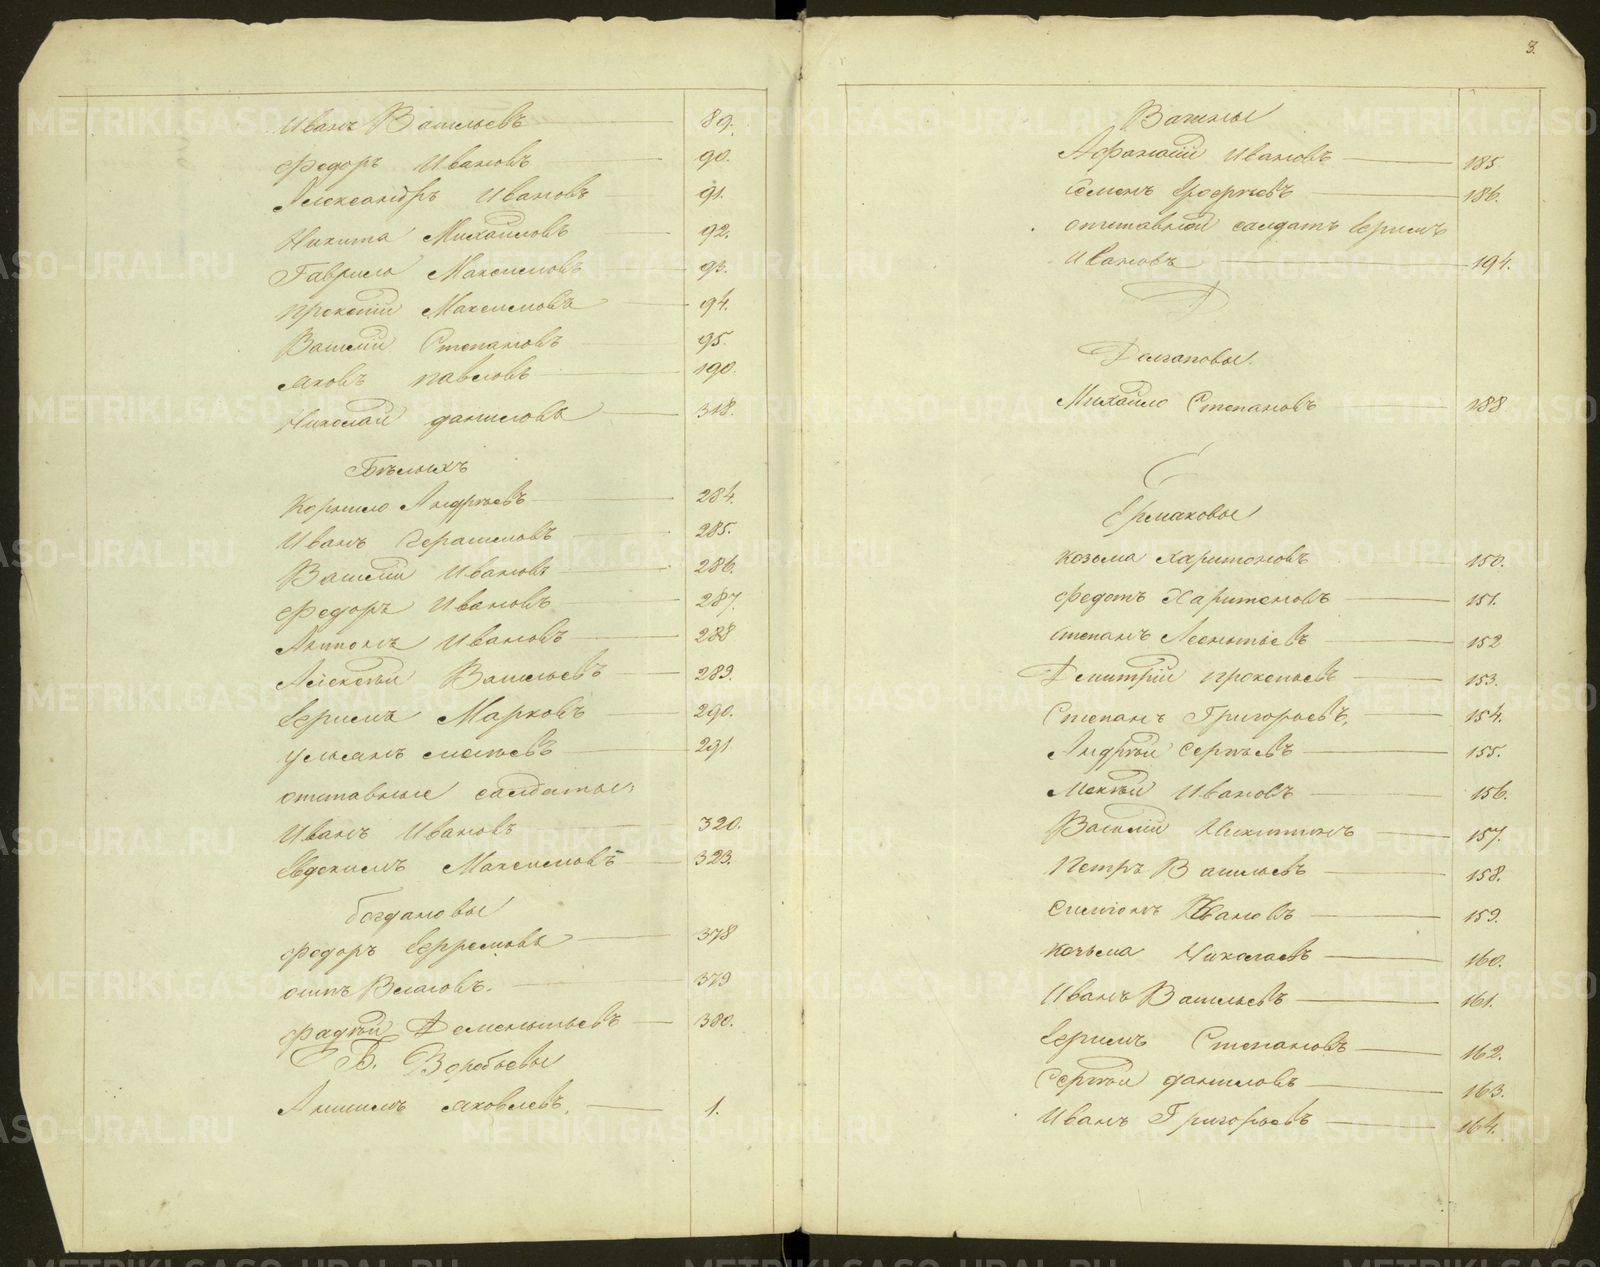 Иванъ Васильевъ 89.
Федоръ Ивановъ 90.
Александръ Ивановъ 91.
Никита Михайловъ 92.
Гаврило Максимовъ 93.
Прокопій Максимовъ 94.
Василій Степановъ 95.
Яковъ Павловъ 190.
Николай Даниловъ 318.
Бѣлыхъ
Корнило Андрѣевъ 284.
Иванъ Герасимовъ 285.
Василій Ивановъ 286.
Федоръ Ивановъ 287.
Антонъ Ивановъ 288
Алексѣй Васильевъ 289.
Ефимъ Марковъ 290.
Ульянъ 291
отставные салдаты
Иванъ Ивановъ 320.
Евдокимъ Максимовъ 323.
Богдановы
Федоръ Ефремовъ 378
Осипъ Власовъ. 379
Фадѣй Дементьевъ 380.
В. Воробьевы
Анисимъ Яковлевъ. 1.
3.
Важины
Афонасій Ивановъ 185
Семенъ 186.
отставной салдатъ Ефимъ
Ивановъ 194.
Д
Долгаповы.
Михайло Степановъ 188
Е
Ермаковы
Козьма Харитоновъ 150.
Федотъ Харитоновъ 151.
Степанъ Леонтьевъ 152
Дмитрій Прокопьевъ 153.
Степанъ Григорьевъ, 154.
Андрѣй Сергѣевъ 155.
Мокѣй Ивановъ 156.
Василій Никитинъ 157.
Петръ Васильевъ 158.
Симіонъ Ивановъ 159.
Козьма Николаевъ 160.
Иванъ Васильевъ 161.
Ефимъ Степановъ 162.
Сергѣй Даниловъ 163.
Иванъ Григорьевъ 164.
METRIKI.GASO-URAL.RU